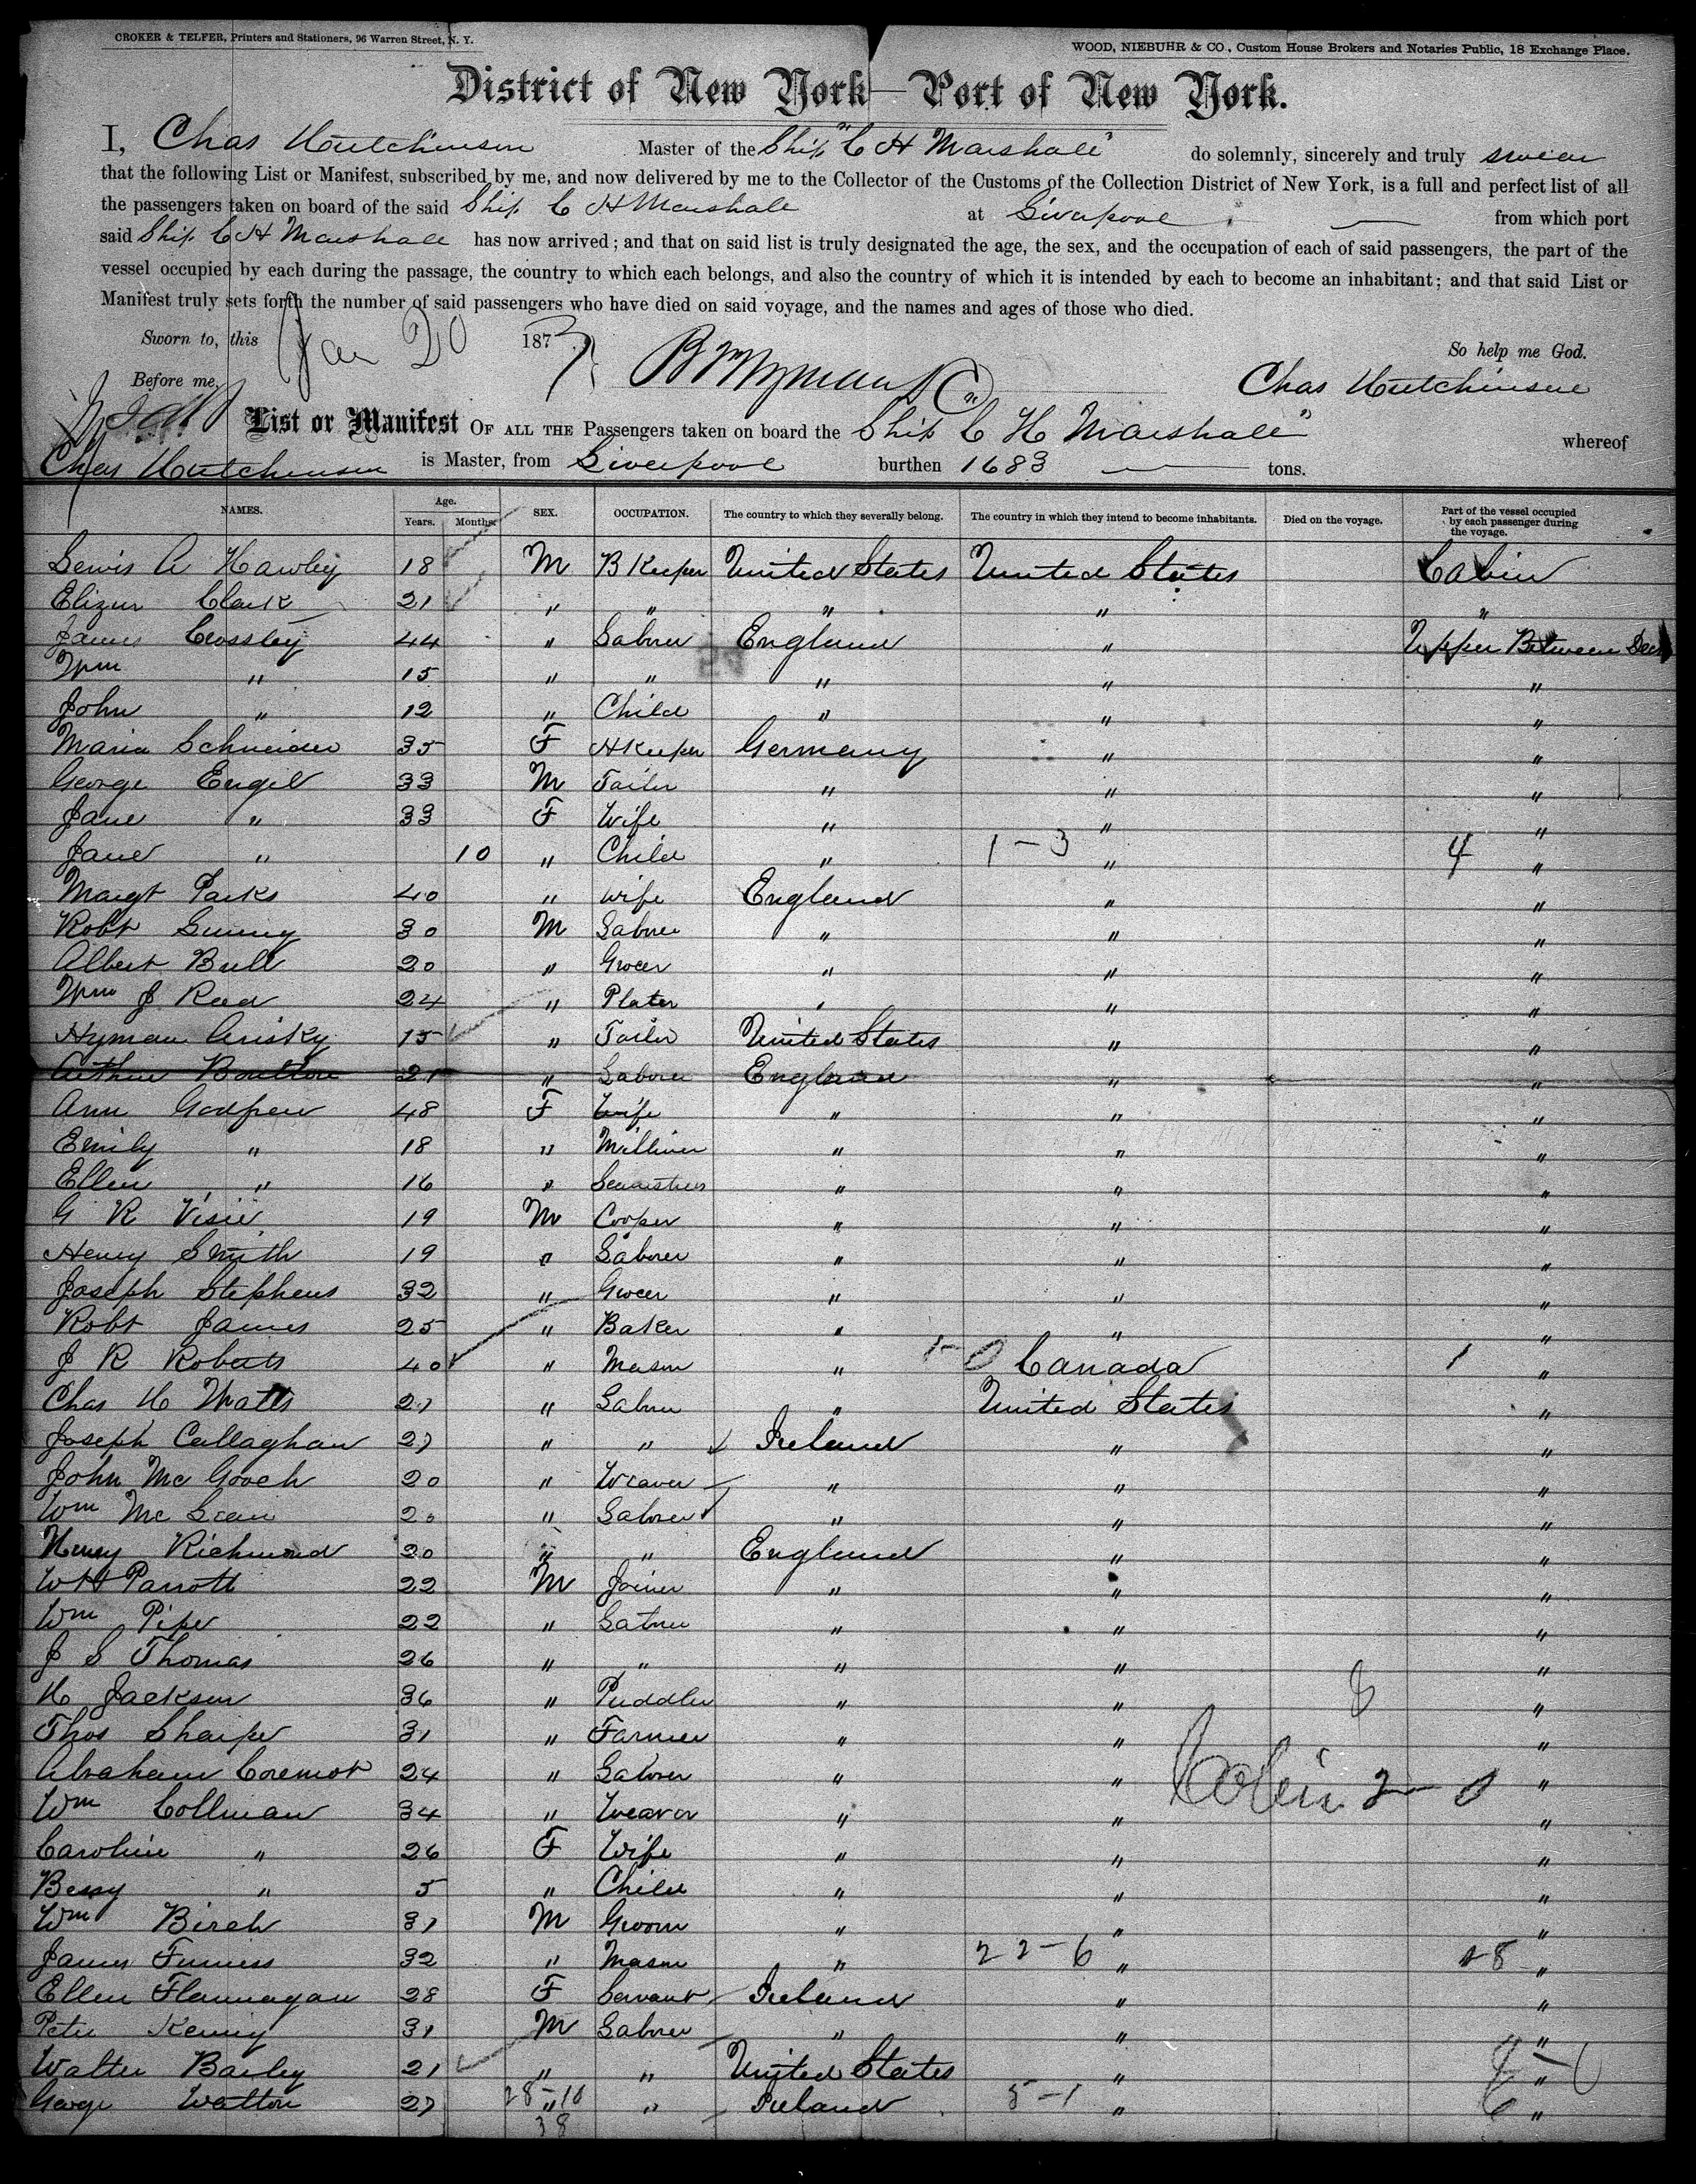 CROKER & TELFER, Printers and Stationers, 96 Warren Street, N. Y.
WOOD, NIEBUHR & CO., Custom House Brokers and Notaries Public, 18 Exchange Place.
District of New York—Port of New York.
I, Chas Hutchinson Master of the Ship "C H Marshall" do solemnly, sincerely and truly swear
that the following List or Manifest, subscribed by me, and now delivered by me to the Collector of the Customs of the Collection District of New York, is a full and perfect list of all
the passengers taken on board of the said Ship C H Marshall at Liverpool from which port
said Ship C H Marshall has now arrived; and that on said list is truly designated the age, the sex, and the occupation of each of said passengers, the part of the
vessel occupied by each during the passage, the country to which each belongs, and also the country of which it is intended by each to become an inhabitant; and that said List or
Manifest truly sets forth the number of said passengers who have died on said voyage, and the names and ages of those who died.
Sworn to, this Jan 20 187
So help me God.
Before me, Chas Hutchinson
List or Manifest OF ALL THE Passengers taken on board the Ship C H Marshall" whereof
Chas Hutchinson is Master, from Liverpool burthen 1683 — tons.
NAMES. Age. Years. Months. SEX. OCCUPATION. The country to which they severally belong. The country in which they intend to become inhabitants. Died on the voyage. Part of the vessel occupied by each passenger during the voyage.
Lewis A Hawley 18 M B Keeper United States United States Cabin
Elizur Clark 21 " " " " "
James Crossley 44 " Labrer England " Upper Between Deck
Wm " 15 " " " " "
John " 12 " Child " " "
Maria Schneider 35 F H Keeper Germany " "
George Engel 33 M Tailor " " "
Jane " 33 F Wife " " "
Jane " 10 " Child " 1-3 " 4 "
Margt Parks 40 " Wife England " "
Robt 30 M Labrer " " "
Albert Bull 20 " Grocer " " "
Wm J Reed 24 " Plater " " "
Hyman 15 " Tailor United States " "
Arthur Boulton 21 " Laborer England " "
Ann Godfrew 48 F Wife " " "
Emily " 18 " Milliner " " "
Ellen " 16 " Seamstress " " "
G R 19 M Cooper " " "
Henry Smith 19 " Laborer " " "
Joseph Stephens 32 " Grocer " " "
Robt James 25 " Baker " " "
J R Roberts 40 " Mason " 1-0 Canada 1 "
Chas H Watts 27 " Labrer " United States "
Joseph Callaghan 27 " " Ireland " "
John Mc Gooch 20 " Weaver " " "
Wm Mc Lean 20 " Laborer " " "
Henry Richmond 20 " " England " "
W H Parrott 22 M Joiner " " "
Wm Piper 22 " Labrer " " "
J S Thomas 26 " " " " "
H Jackson 36 " Puddler " " "
Thos Sharpe 31 " Farmer " " "
Abraham 24 " Laborer " " "
Cabin 2-0
Wm Collman 34 " Weaver " " "
Caroline " 26 F Wife " " "
Bessy " 5 " Child " " "
Wm Birch 31 M Groom " " "
James Furniss 32 " Mason " 22-6 " 28 "
Ellen Flannagan 28 F Servant Ireland " "
Peter Kenny 31 M Laborer " " "
Walter Bailey 21 " " United States " "
George Watton 27 " " Ireland 5-1 " 6 "
28-10
38